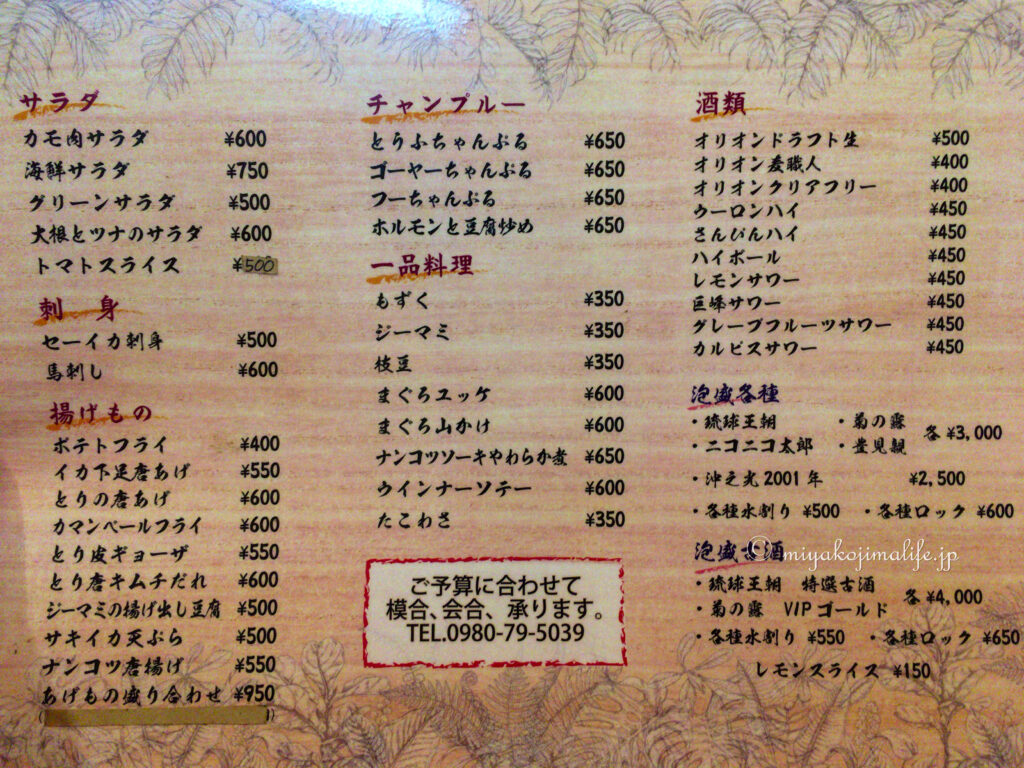 サラダ
カモ肉サラダ ¥600
海鮮サラダ ¥750
グリーンサラダ ¥500
大根とツナのサラダ ¥600
トマトスライス ¥500
刺 身
セーイカ刺身 ¥500
馬刺し ¥600
揚げもの
ポテトフライ ¥400
イカ下足唐あげ ¥550
とりの唐あげ ¥600
カマンベールフライ ¥600
とり皮ギョーザ ¥550
とり唐キムチだれ ¥600
ジーマミの揚げ出し豆腐 ¥500
サキイカ天ぷら ¥500
ナンコツ唐揚げ ¥550
あげもの盛り合わせ ¥950
チャンプルー
とうふちゃんぷる ¥650
ゴーヤーちゃんぷる ¥650
フーちゃんぷる ¥650
ホルモンと豆腐炒め ¥650
一品料理
もずく ¥350
ジーマミ ¥350
枝豆 ¥350
まぐろユッケ ¥600
まぐろ山かけ ¥600
ナンコツソーキやわらか煮 ¥650
ウインナーソテー ¥600
たこわさ ¥350
ご予算に合わせて
模合、会合、承ります。
TEL.0980-79-5039
酒類
オリオンドラフト生 ¥500
オリオン麦職人 ¥400
オリオンクリアフリー ¥400
ウーロンハイ ¥450
さんぴんハイ ¥450
ハイボール ¥450
レモンサワー ¥450
巨峰サワー ¥450
グレープフルーツサワー ¥450
カルピスサワー ¥450
泡盛各種
・琉球王朝 ・菊の露
・ニコニコ太郎 ・豊見親 各 ¥3,000
・沖之光2001年 ¥2,500
・各種水割り ¥500 ・各種ロック ¥600
泡盛古酒
・琉球王朝 特選古酒
・菊の露 VIPゴールド 各 ¥4,000
・各種水割り ¥550 ・各種ロック ¥650
レモンスライス ¥150
©miyakojimalife.jp